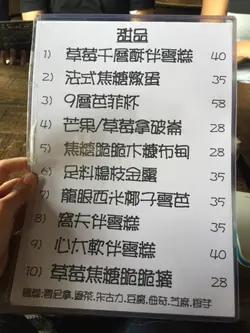 甜品
1) 草莓千層酥伴雪糕 40
2) 法式焦糖燉蛋 35
3) 9層芭菲杯 58
4) 芒果/草莓拿破崙 28
5) 焦糖脆脆木糠布甸 28
6) 足料楊枝金露 35
7) 龍眼西米椰子雪芭 35
8) 窩夫伴雪糕 40
9) 心太軟伴雪糕 40
10) 草莓焦糖脆脆撻 28
雪糕:雲呢拿,綠茶,朱古力,豆腐,曲奇,芝麻,香芋